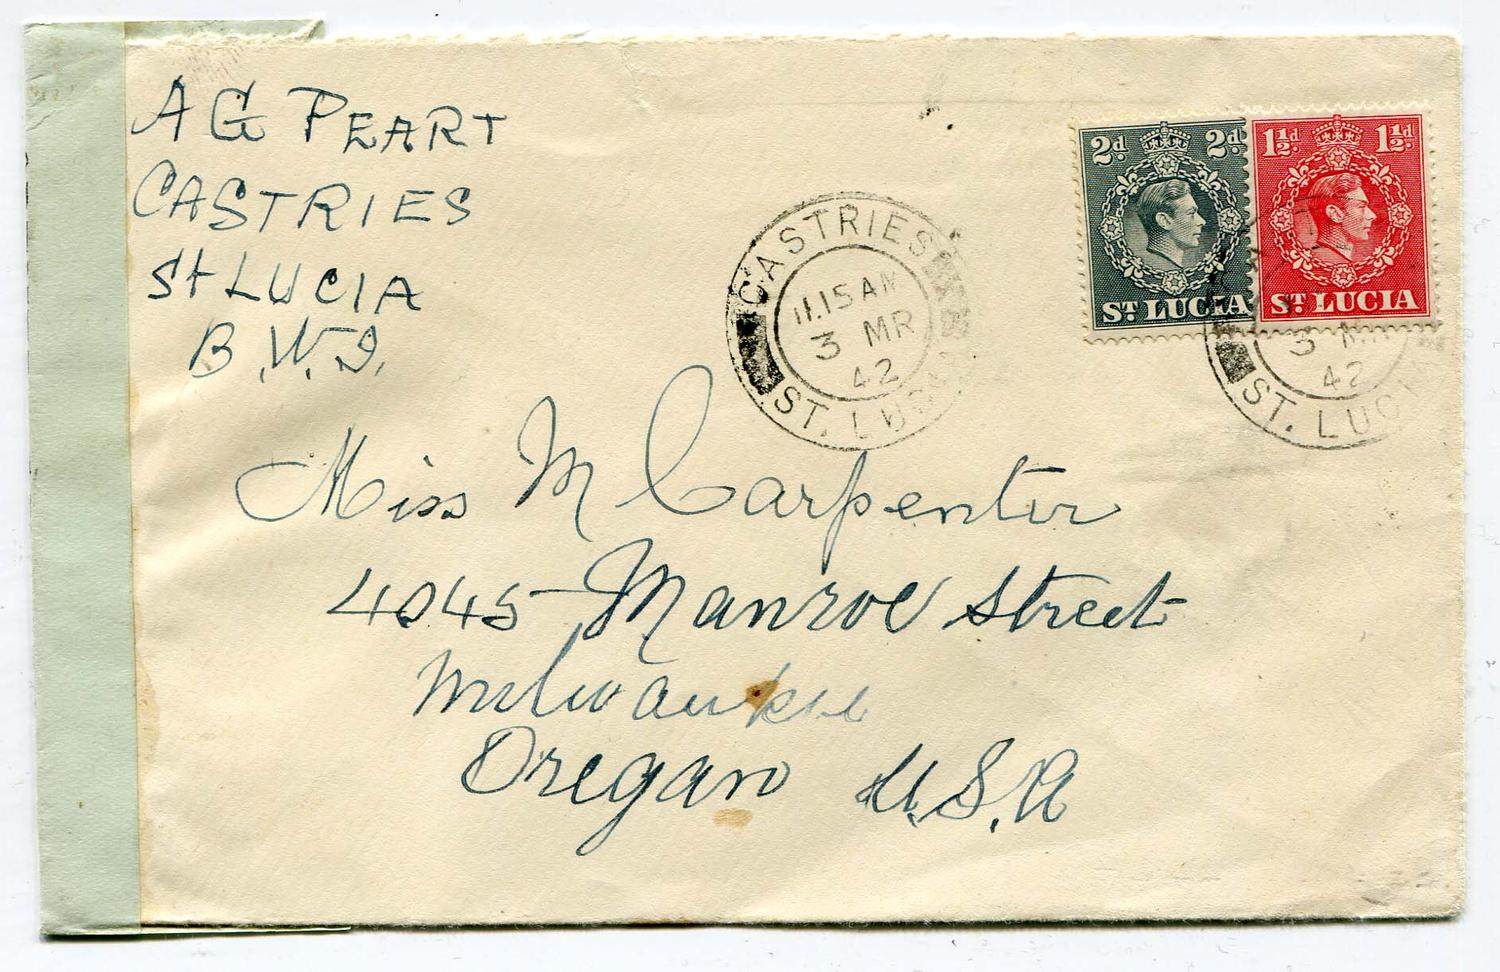 A G PEART
CASTRIES
St LUCIA
B.W.I.
2d. 2d.
ST LUCIA
1½d. 1½d.
ST LUCIA
CASTRIES
11.15 AM
3 MR
42
ST. LUCIA
3 MR
42
ST. LUCIA
Miss M Carpenter
4045 Manroe Street
Milwaukee
Oregan U.S.A